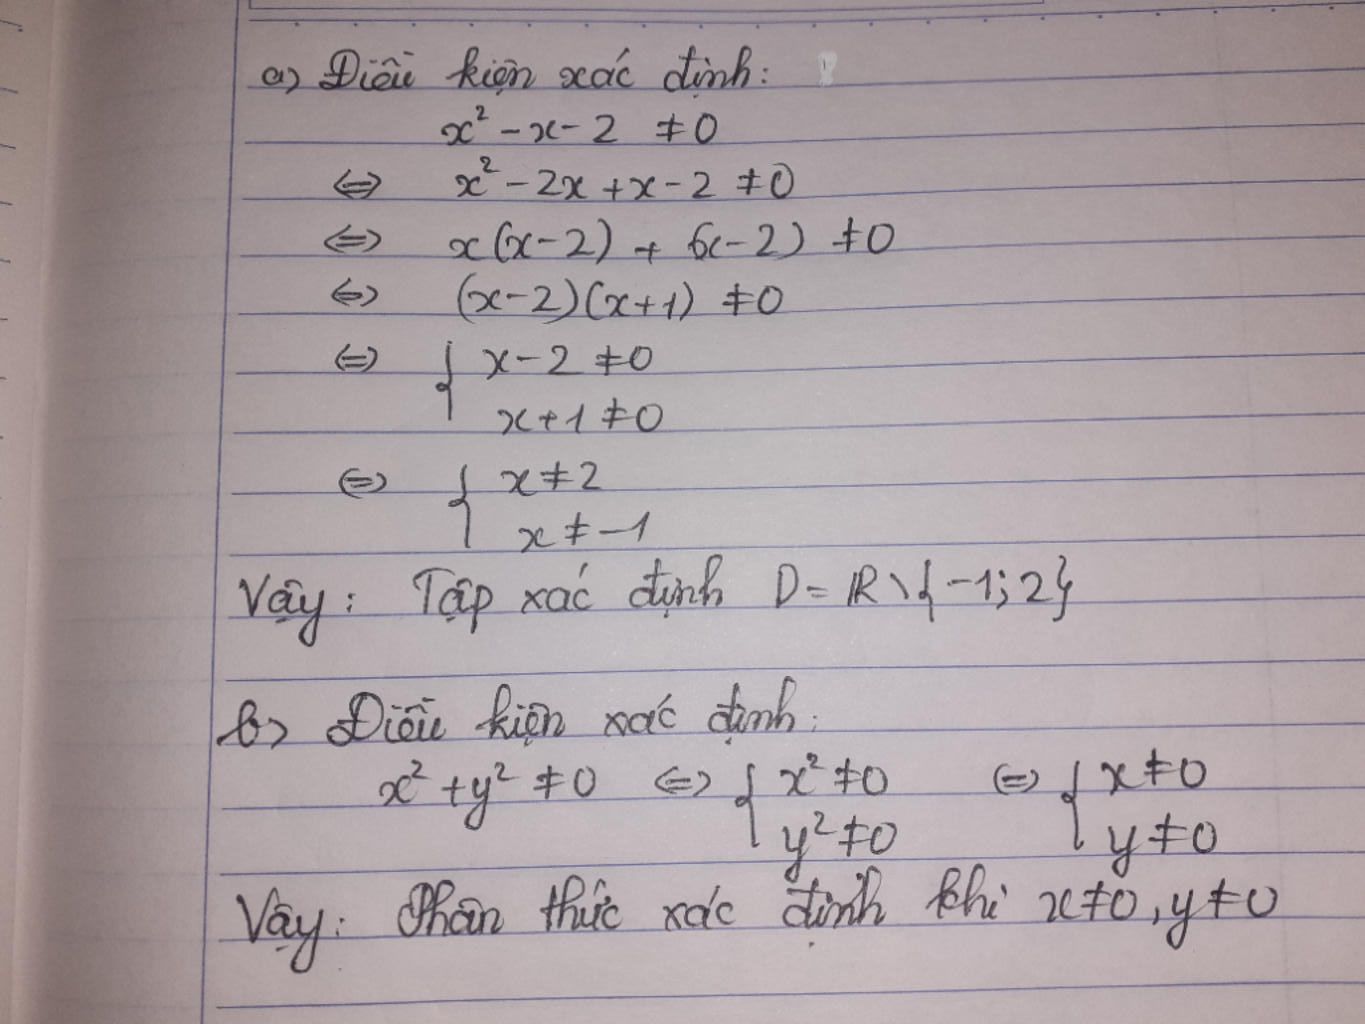 a) Điều kiện xác định:
x² - x - 2 ≠ 0
⇔ x² - 2x + x - 2 ≠ 0
⇔ x(x - 2) + (x - 2) ≠ 0
⇔ (x - 2)(x + 1) ≠ 0
⇔ { x - 2 ≠ 0
x + 1 ≠ 0
⇔ { x ≠ 2
x ≠ -1
Vậy: Tập xác định D = ℝ \ { -1; 2}
b) Điều kiện xác định:
x² + y² ≠ 0 ⇔ { x² ≠ 0 ⇔ { x ≠ 0
y² ≠ 0 y ≠ 0
Vậy: Phân thức xác định khi x ≠ 0, y ≠ 0